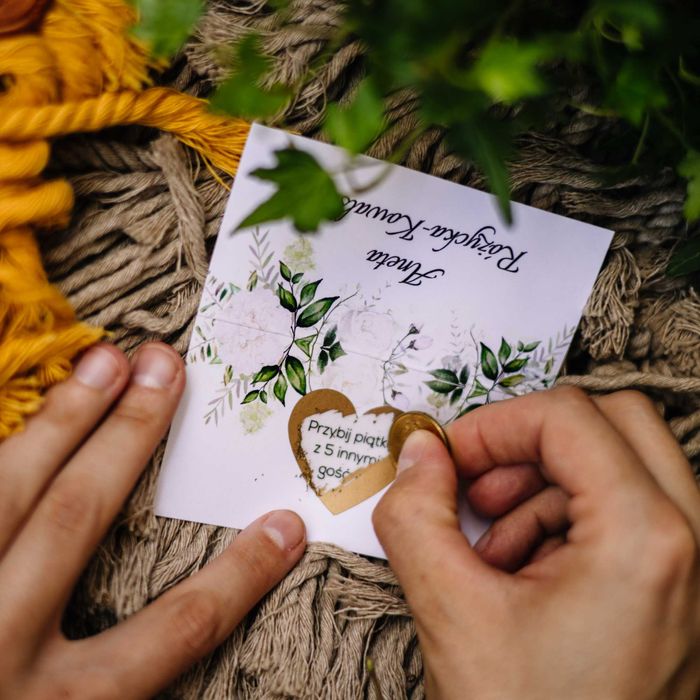 Aneta
Różycka-Kowal
Przybij piątk
z 5 innymi
gość